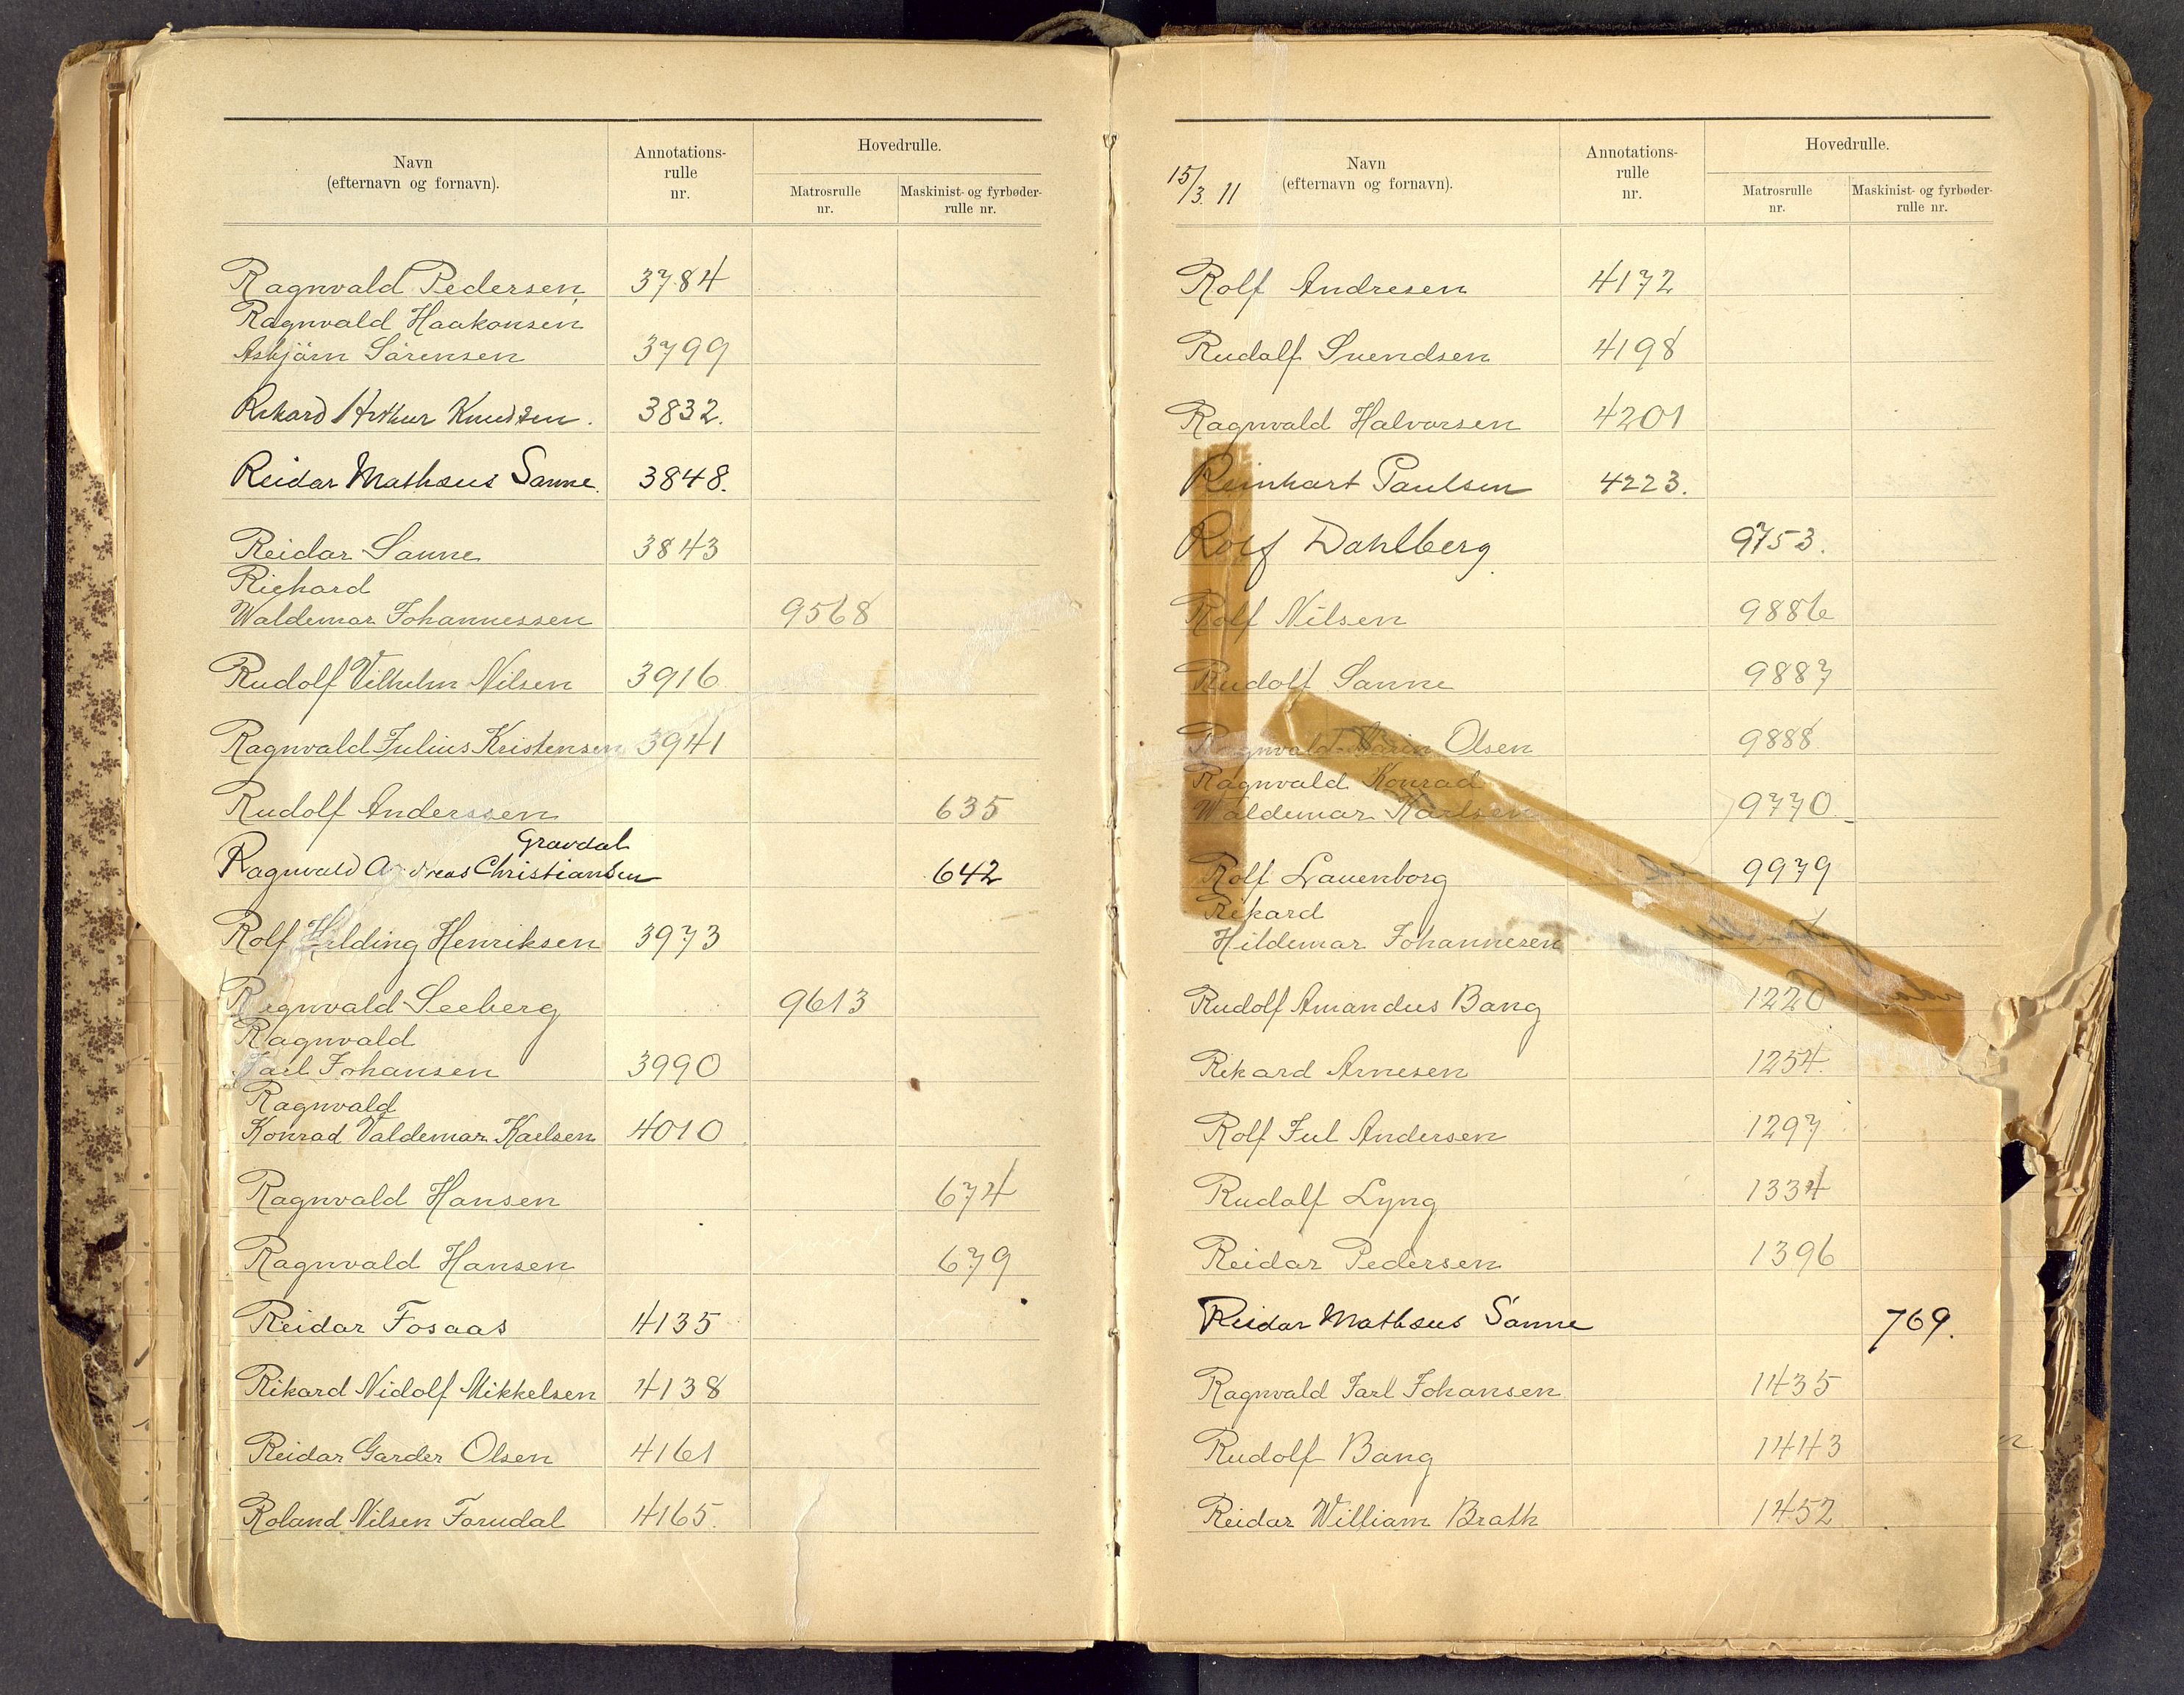 Navn
(efternavn og fornavn).
Annotations-
rulle
nr.
Hovedrulle.
Matrosrulle
nr.
Maskinist- og fyrbøder-
rulle nr.
Ragnvald Pedersen 3784
Ragnvald Haakonsen
Asbjörn Sörensen 3799
Rikard Arthur Knudsen. 3832.
Reidar Mathæus Sanne. 3848.
Reidar Sanne 3843
Richard
Waldemar Johannessen 9568
Rudolf Vilhelm Nilsen 3916
Ragnvald Julius Kristensen 3941
Rudolf Anderssen 635
Gravdal
Ragnvald Andreas Christiansen 642
Rolf Hilding Henriksen 3973
Ragnvald Seeberg 9613
Ragnvald
Jarl Johansen 3990
Ragnvald
Konrad Valdemar Karlsen 4010
Ragnvald Hansen 674
Ragnvald Hansen 679
Reidar Fosaas 4135
Rikard Nidolf Mikkelsen 4138
Reidar Garder Olsen 4161
Roland Nilsen Forudal 4165.
15/3. 11
Navn
(efternavn og fornavn).
Annotations-
rulle
nr.
Hovedrulle.
Matrosrulle
nr.
Maskinist- og fyrbøder-
rulle nr.
Rolf Andresen 4172
Rudolf Svendsen 4198
Ragnvald Halvorsen 4201
Reinhart Paulsen 4223.
Rolf Dahlberg 9753.
Rolf Nilsen 9886
Rudolf Sanne 9887
Ragnvald Olsen 9888
Ragnvald Konrad
Waldemar Karlsen 9770
Rolf Lauenborg 9979
Rikard
Hildemar Johannesen
Rudolf Amandus Bang 1220
Rikard Arnesen 1254.
Rolf Jul Andersen 1297
Rudolf Lyng 1334
Reidar Pedersen 1396
Reidar Mathæus Sanne 769.
Ragnvald Jarl Johansen 1435
Rudolf Bang 1443
Reidar William Brath 1452